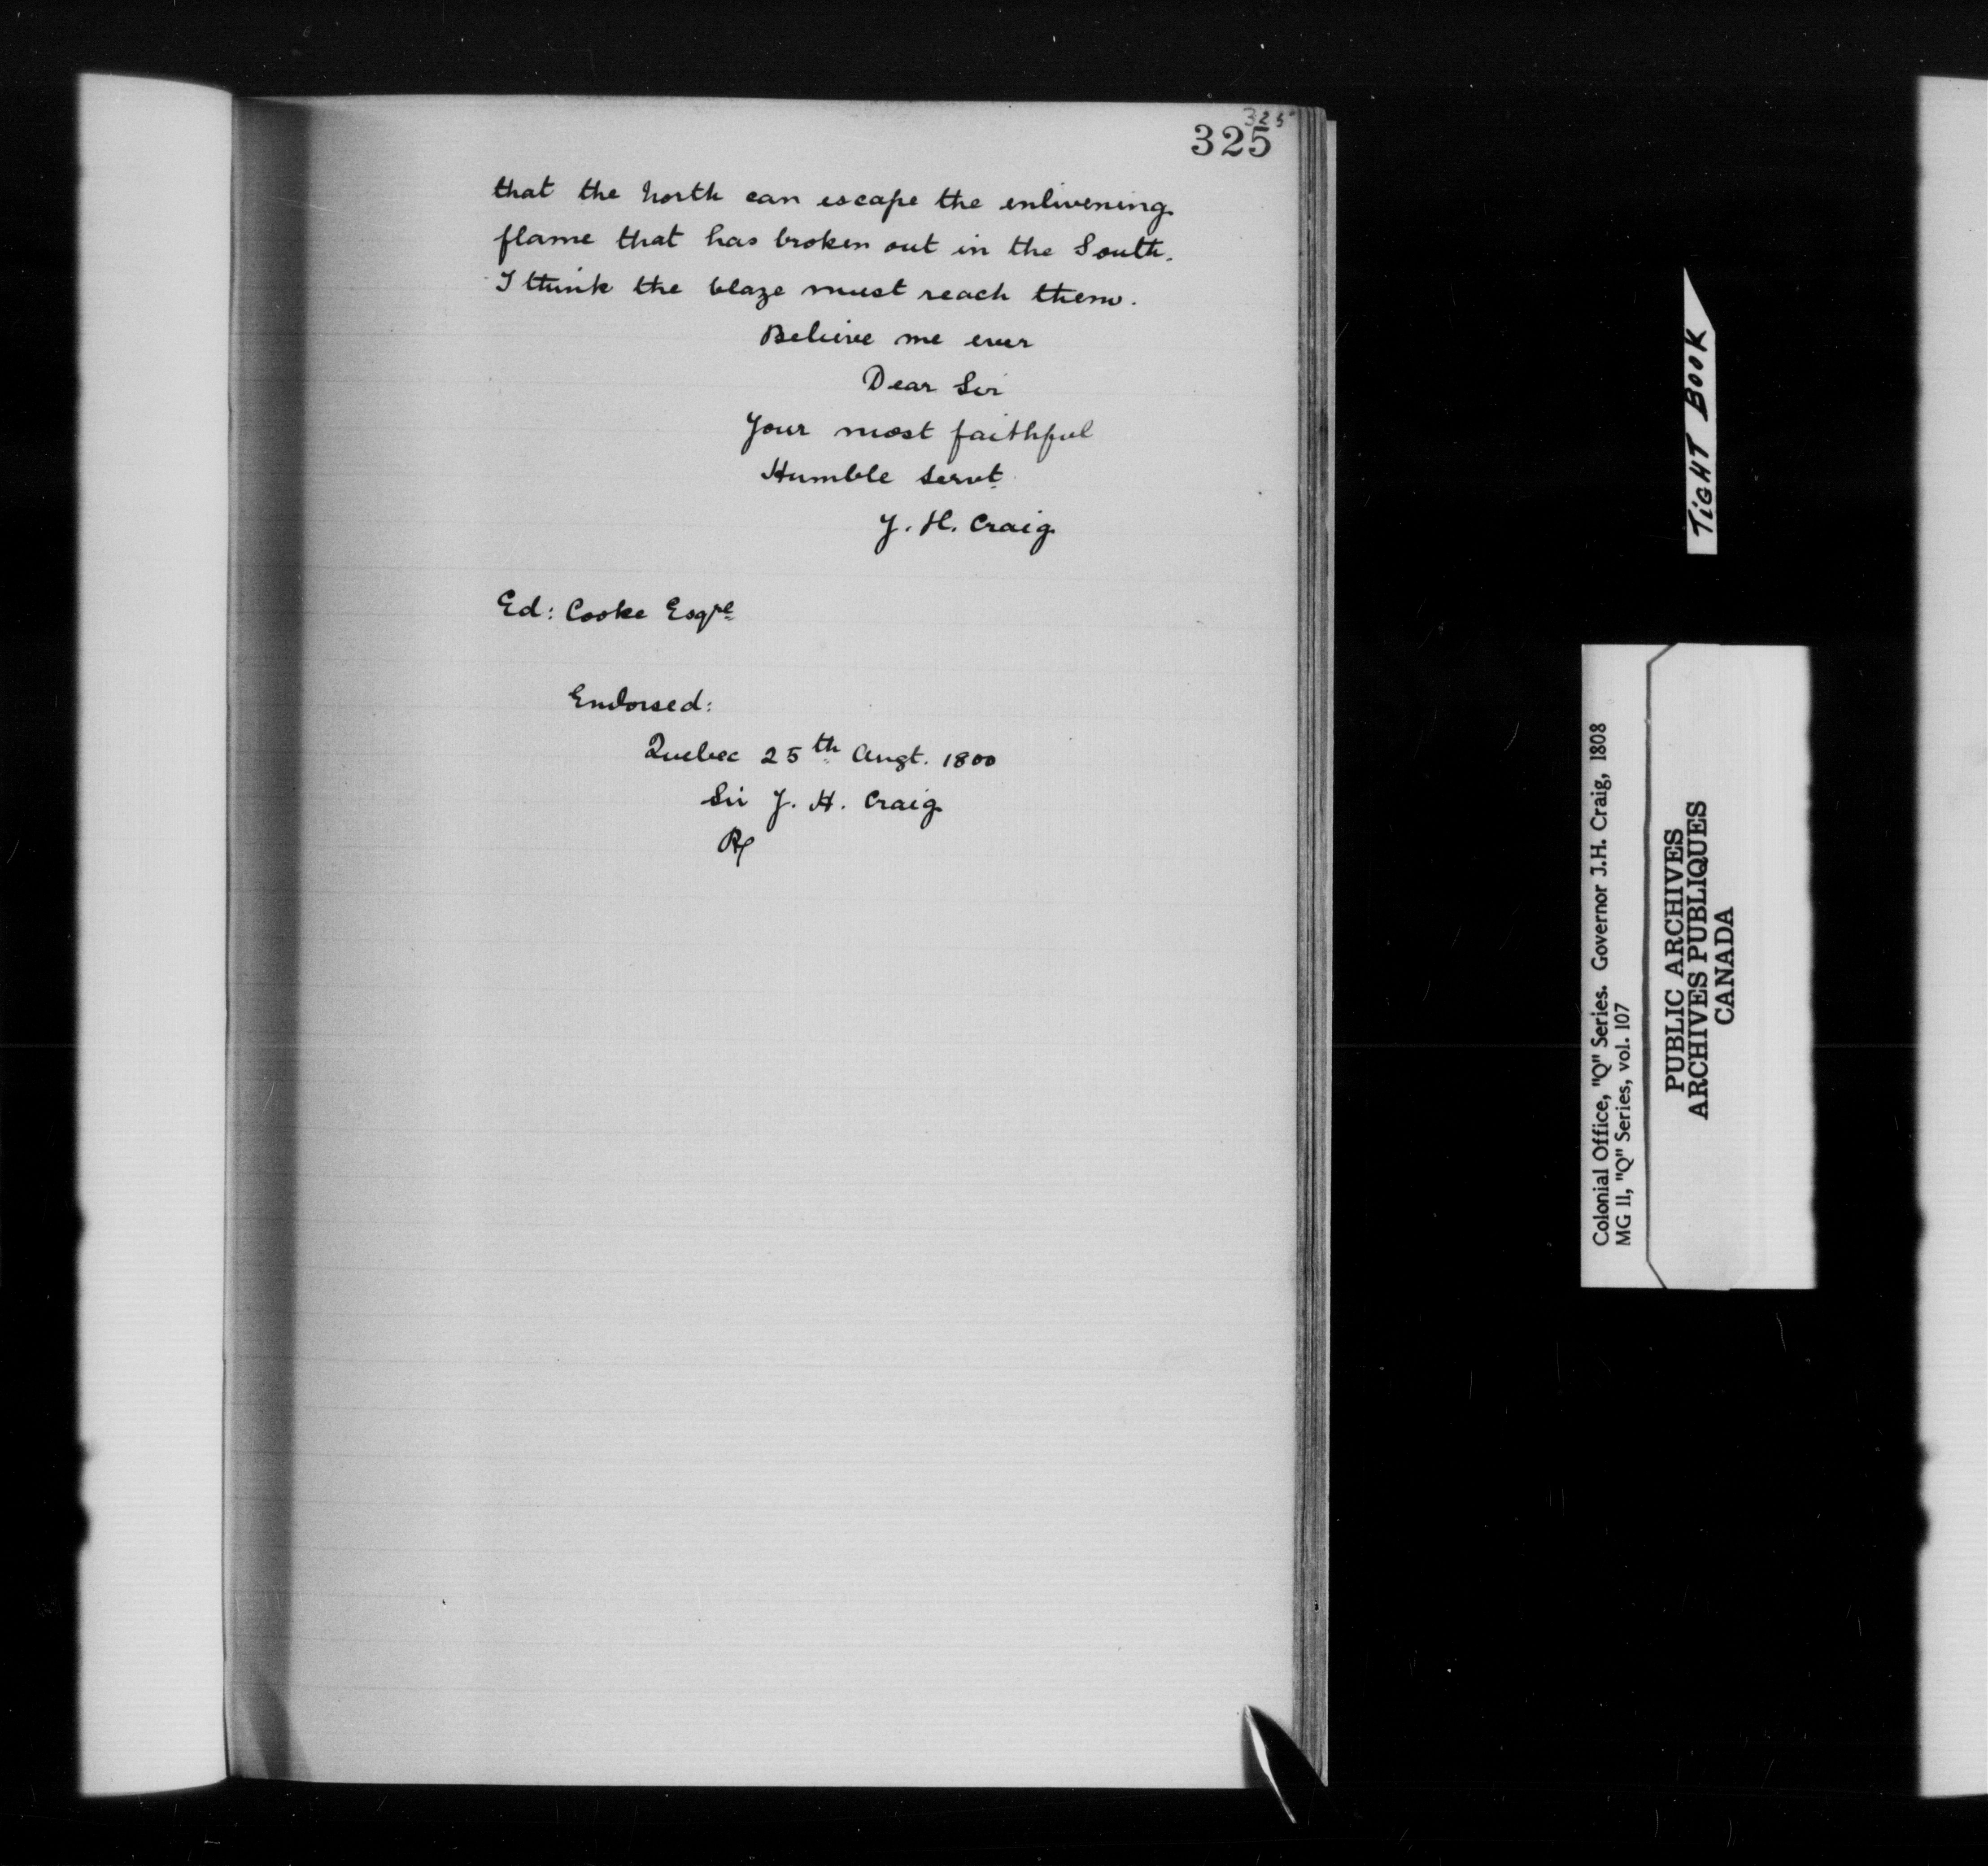 325
325
that the North can escape the enlivening
flame that has broken out in the South.
I think the blaze must reach them.
Believe me ever
Dear Sir
Your most faithful
Humble Servt
J. H. Craig
Ed: Cooke Esqre
Endorsed:
Quebec 25th Augt. 1800
Sir J. H. Craig
TIGHT BOOK
Colonial Office, "Q" Series. Governor J.H. Craig, 1808
MG 11, "Q" Series, vol. 107
PUBLIC ARCHIVES
ARCHIVES PUBLIQUES
CANADA